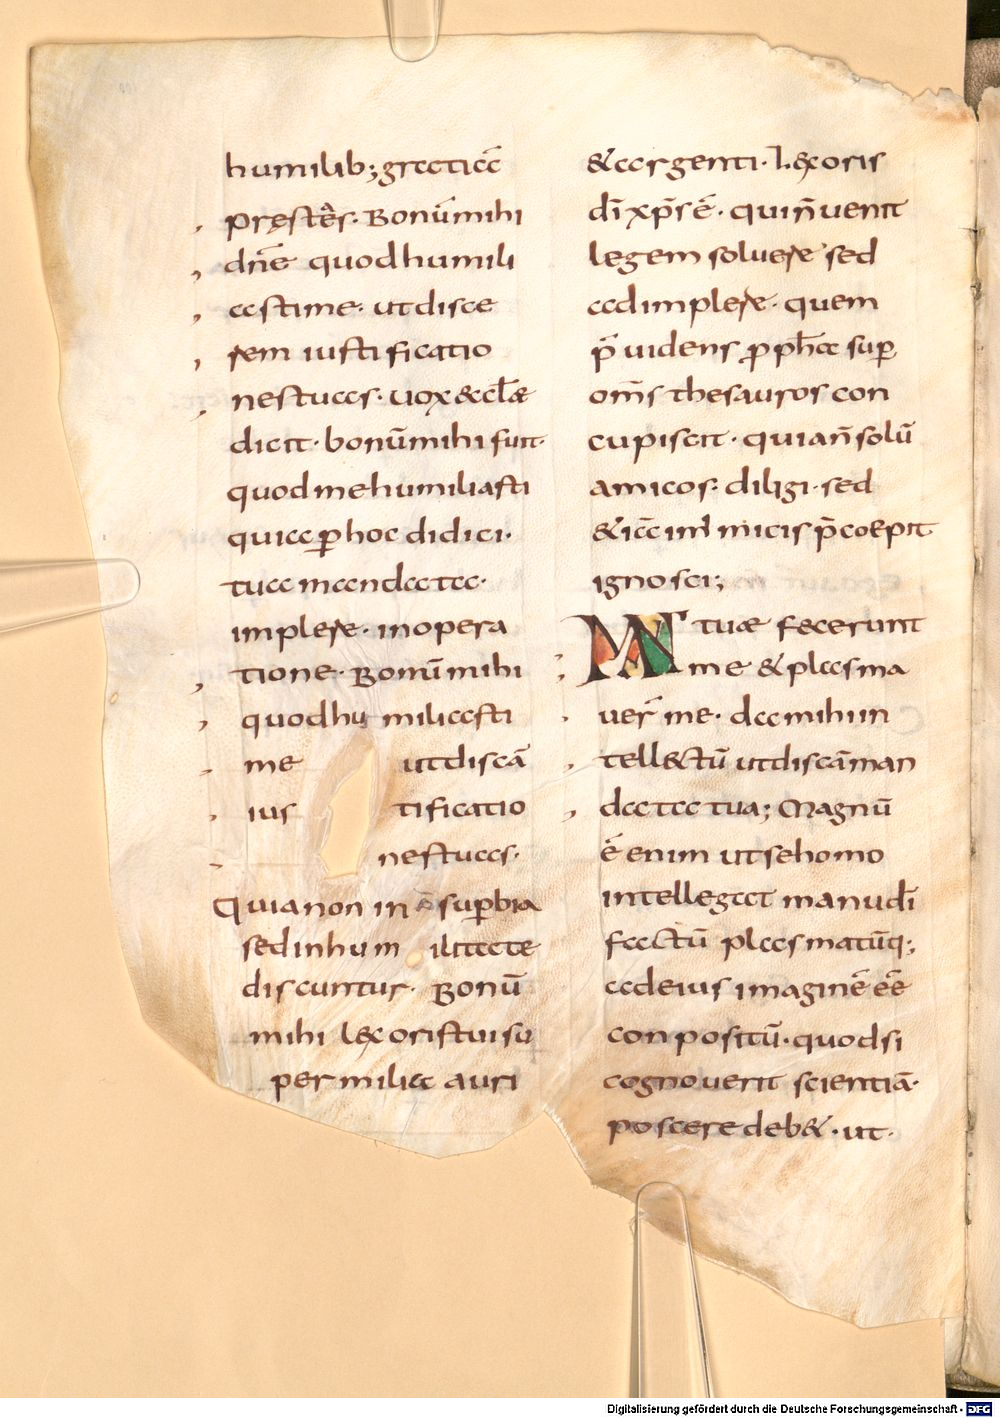 humilib; gratiā
pręstēs. Bonūmihi
dnē quodhumili
astime. utdisce
rem iustificatio
nestuas. uox&clæ
dicit. bonūmihi fuit.
quodmehumiliasti
quiap̱hoc didici.
tua mandata.
implere. inopera
tione. Bonūmihi
quodhu miliasti
me utdiscā
ius tificatio
nestuas.
Quianon in superbia
sedinhum ilitate
discuntur. Bonū
mihi lex oristuisu
permilia auri
&argenti. Lexoris
dī xp̄s ē. quiñuenit
legem soluere sed
adimplere. quem
p̄uidens ꝓph̄a suꝑ
om̄s thesauros con
cupiscit. quiañsolū
amicos. diligi. sed
&iā inimicis p̄coepit
ignosci;
MANUS tuæ fecerunt
me &plasma
uer̄ me. damihiin
tell&tū utdiscāman
datatua; Magnū
ē enim utsehomo
intellegat manudī
factū plasmatūq;
adeius imaginē eē
conpositū. quodsi
cognouerit scientiā.
poscere deb&. ut.
Digitalisierung gefördert durch die Deutsche Forschungsgemeinschaft - DFG